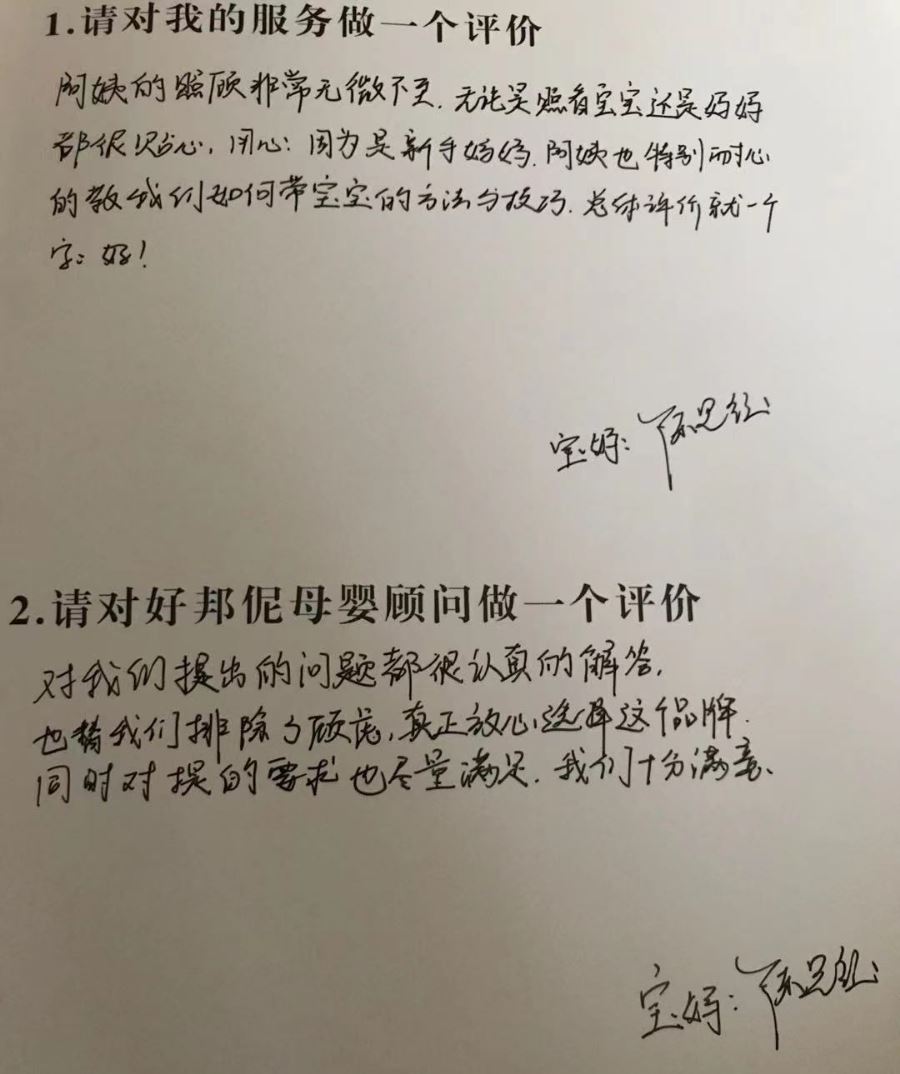 1.请对我的服务做一个评价
阿姨的照顾非常无微不至.无论是照看宝宝还是妈妈
都很贴心,用心:因为是新手妈妈.阿姨也特别耐心
的教我们如何带宝宝的方法与技巧.总体评价就一个
字:好!
宝妈:
2.请对好邦伲母婴顾问做一个评价
对我们提出的问题都很认真的解答.
也替我们排除了顾虑,真正放心选择这个品牌.
同时对提的要求也尽量满足.我们十分满意、
宝妈: